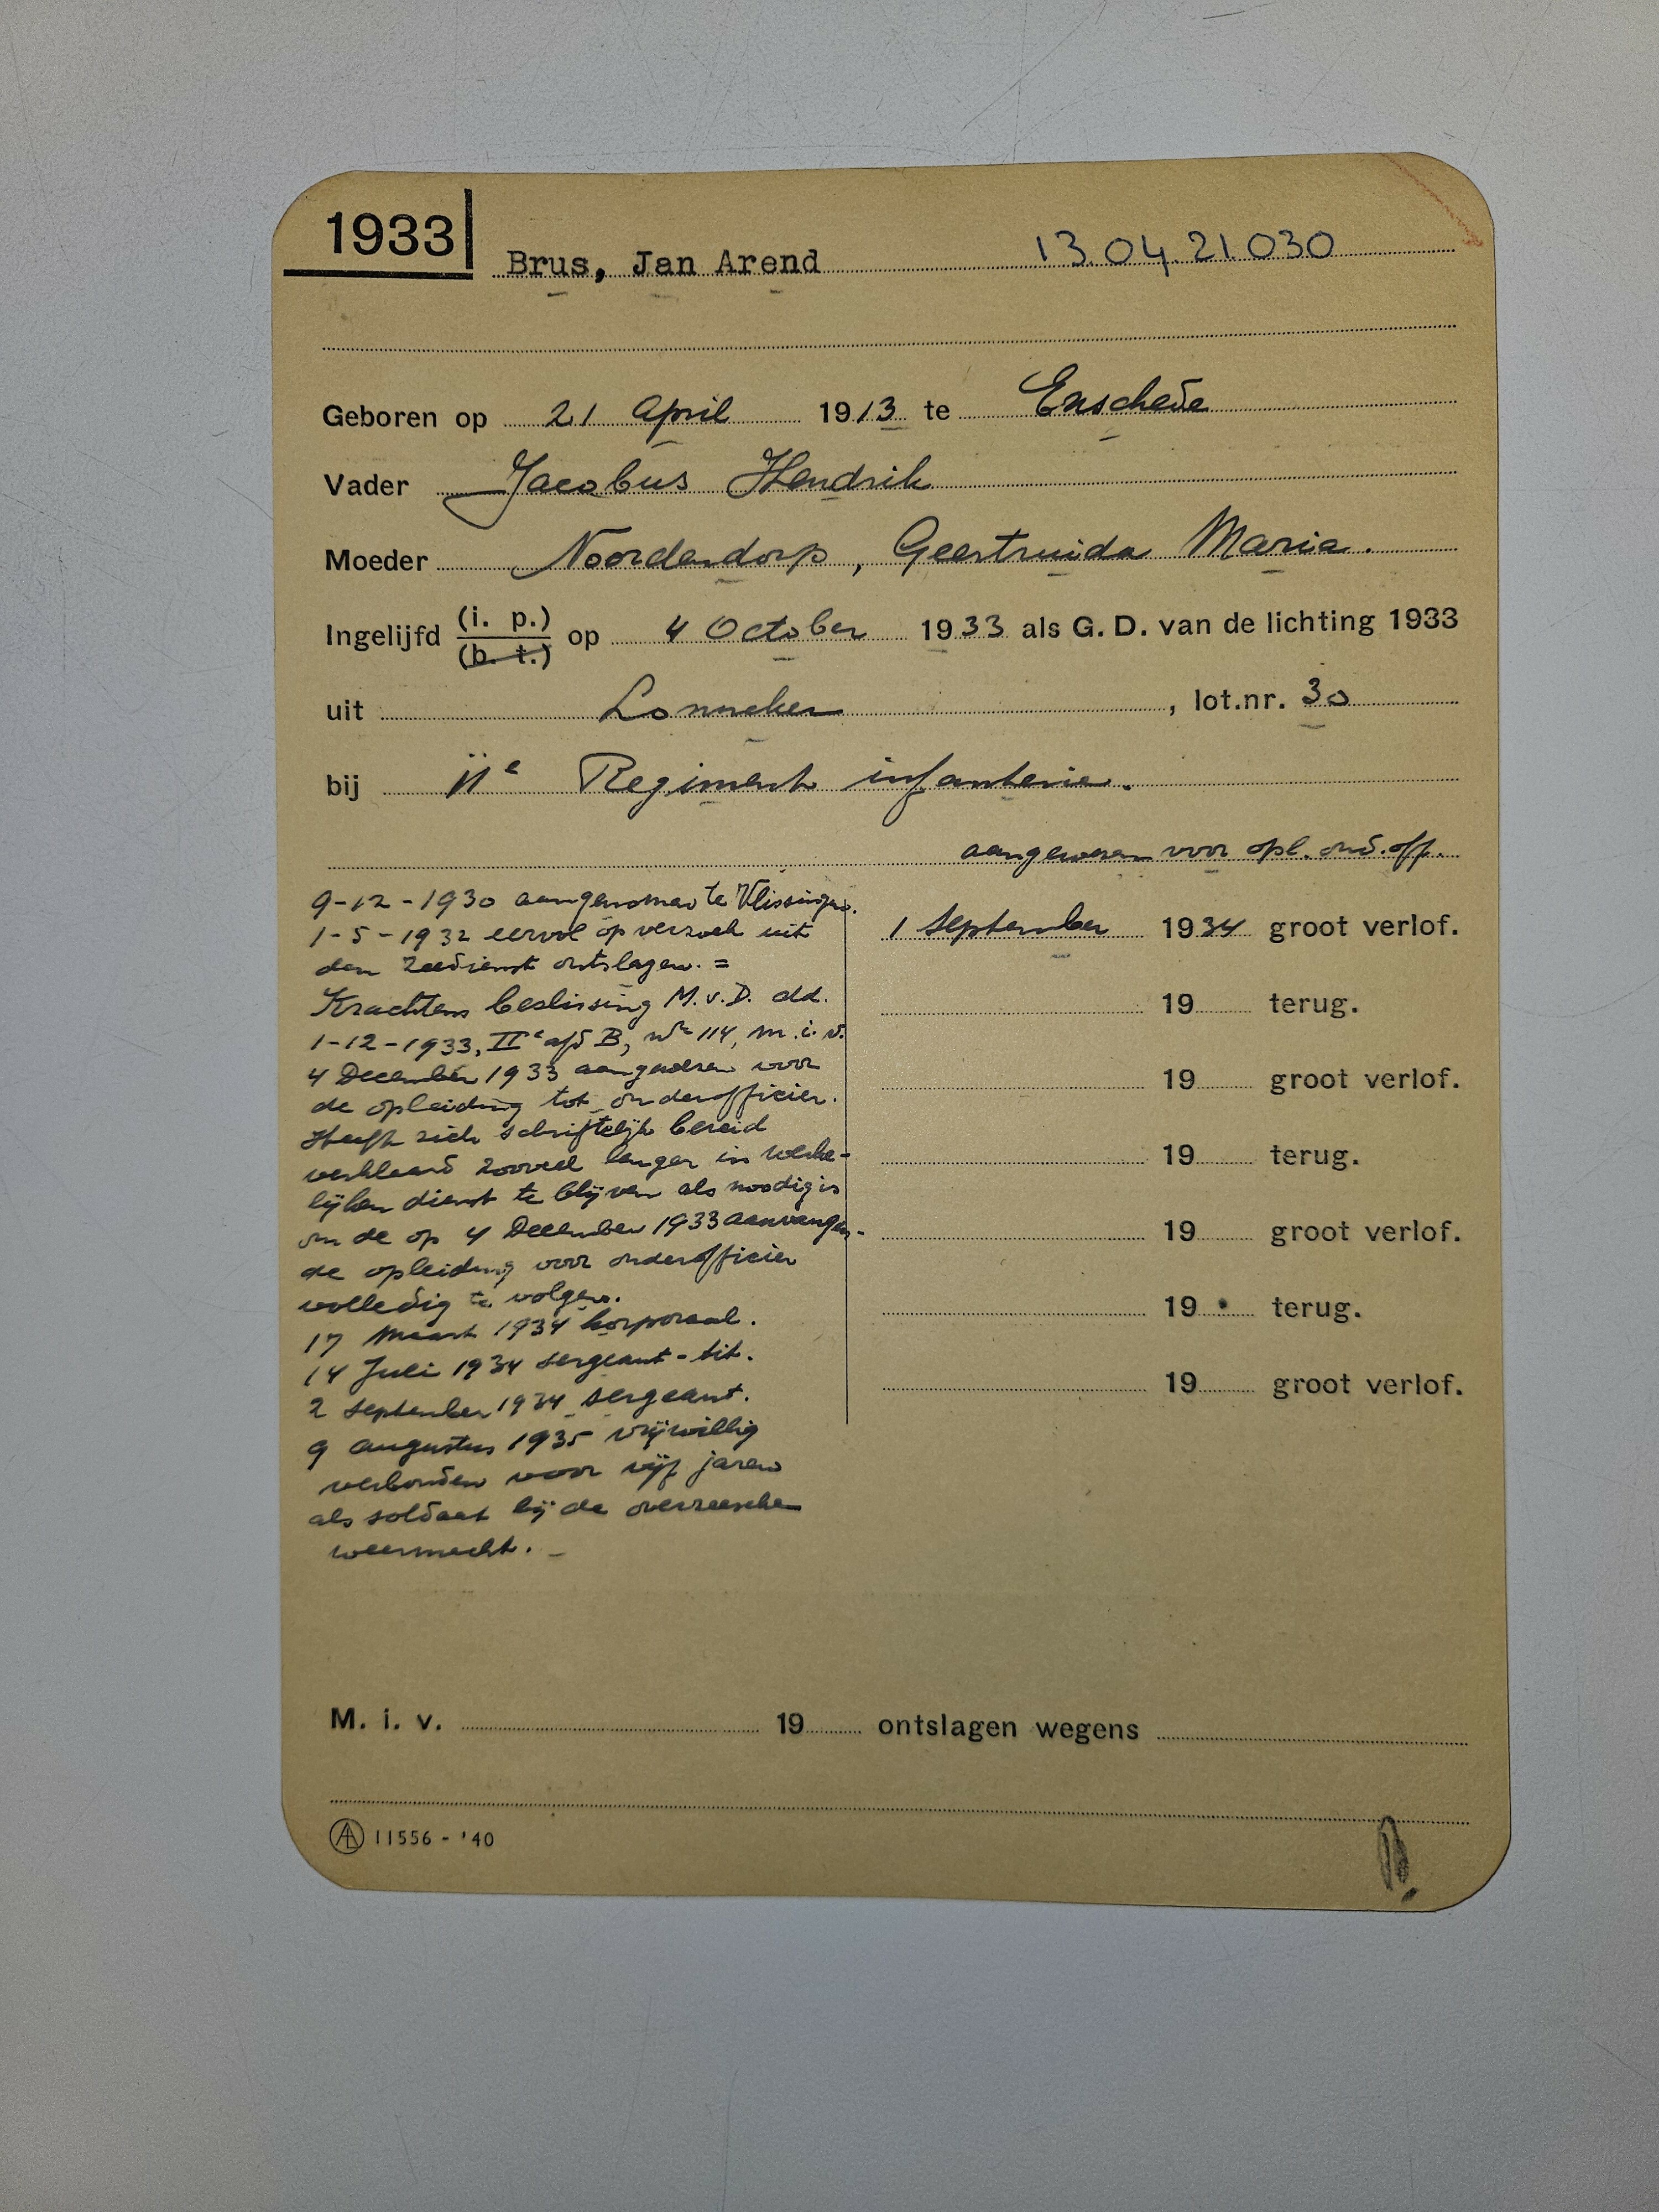 1933
Brus, Jan Arend 13.04.21.030
Geboren op 21 April 1913 te Enschede
Vader Jacobus Hendrik
Moeder Noordendorp, Geertruida Maria.
Ingelijfd (i. p.) (b. t.) op 4 October 1933 als G. D. van de lichting 1933
uit Lonneker, lot.nr. 30
bij 11e Regiment infanterie.
aangewezen voor opl. ond. off.
9-12-1930 aangenomen te Vlissingen.
1-5-1932 eervol op verzoek uit
den Zeedienst ontslagen. =
Krachtens beslissing M.v.D. dd.
1-12-1933, IIe afd B, no 114, m.i.v.
4 December 1933 aangewezen voor
de opleiding tot onderofficier.
Heeft zich schriftelijk bereid
verklaard zooveel langer in werke-
lijken dienst te blijven als noodig is
om de op 4 December 1933 aanvangen-
de opleiding voor onderofficier
volledig te volgen.
17 Maart 1934 korporaal.
14 Juli 1934 sergeant-tit.
2 September 1934 sergeant.
9 augustus 1935 vrijwillig
verbonden voor vijf jaren
als soldaat bij de overzeesche
weermacht. -
1 September 1934 groot verlof.
19 terug.
19 groot verlof.
19 terug.
19 groot verlof.
19 terug.
19 groot verlof.
M. i. v. 19 ontslagen wegens
11556 - '40